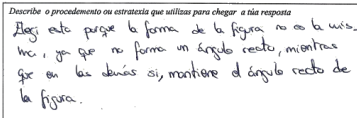 Describe o procedemento ou estratexia que utilizas para chegar a túa resposta
Elegi esta porque la forma de la figura no es la mis-
ma, ya que no forma un ángulo recto, mientras
que en las demás si, mantiene el ángulo recto de
la figura.